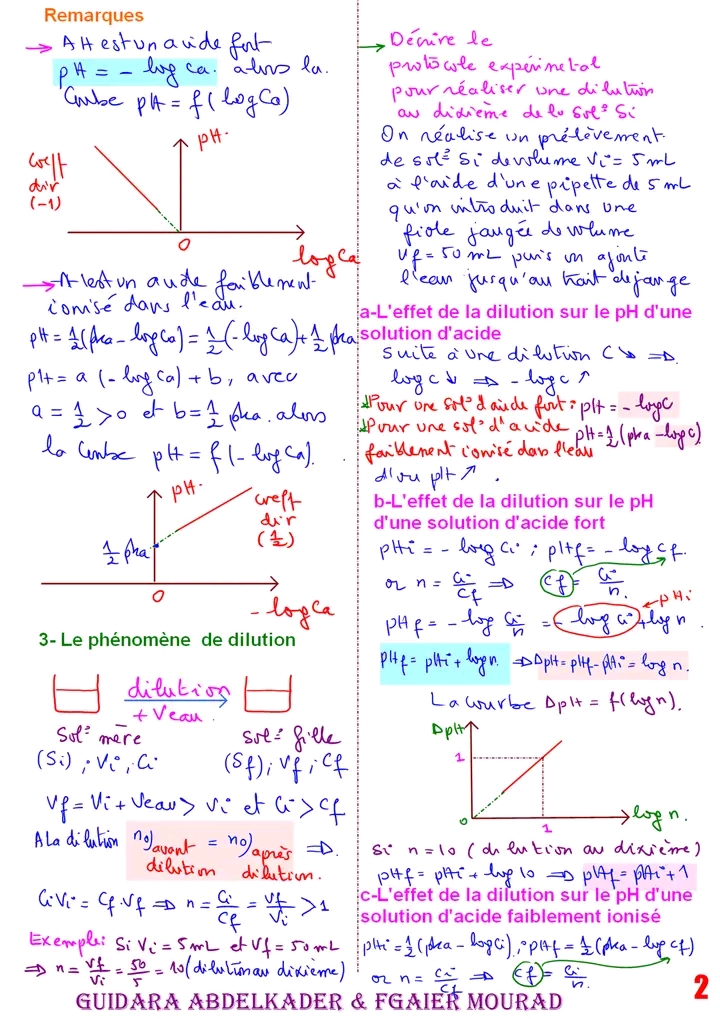 Remarques
→ AH est un acide fort
pH = - log Ca. alors la
Courbe pH = f(log Ca)
pH.
Coeff
dir
(-1)
0
log Ca
→ A est un acide faiblement
ionisé dans l'eau.
pH = 1/2 (pka - log Ca) = 1/2 (- log Ca) + 1/2 pka
pH = a (- log Ca) + b, avec
a = 1/2 > 0 et b = 1/2 pka. alors
la Courbe pH = f(- log Ca).
pH.
coeff
dir
(1/2)
1/2 pka
0
- log Ca
3- Le phénomène de dilution
dilution
+ Veau.
Solº mère
Solº fille
(Si) ; Vi, Ci
(Sf) ; Vf ; Cf
Vf = Vi + Veau > Vi et Ci > Cf
A La dilution n0) avant dilution = n0) après dilution. ⇒
CiVi = Cf.Vf ⇒ n = Ci/Cf = Vf/Vi > 1
Exemple: Si Vi = 5mL et Vf = 50mL
⇒ n = Vf/Vi = 50/5 = 10 (dilution au dixième)
→ Décrire le
protocole expérimetal
pour réaliser une dilution
au dixième de la Solº Si
On réalise un prélèvement
de solº Si de volume Vi = 5 mL
à l'aide d'une pipette de 5 mL
qu'on introduit dans une
fiole jaugée de volume
Vf = 50 mL puis on ajoute
l'eau jusqu'au trait de jauge
a-L'effet de la dilution sur le pH d'une
solution d'acide
Suite à une dilution C ↘ ⇒
log c ↘ ⇒ - log c ↗
* Pour une Solº d'acide fort : pH = - log C
* Pour une solº d'acide
faiblement ionisé dans l'eau pH = 1/2 (pka - log C)
d'où pH ↗.
b-L'effet de la dilution sur le pH
d'une solution d'acide fort
pHi = - log Ci ; pHf = - log Cf.
or n = Ci/Cf ⇒ Cf = Ci/n.
pHi
pHf = - log Ci/n = - log Ci + log n
pHf = pHi + log n. ⇒ ΔpH = pHf - pHi = log n.
La courbe ΔpH = f(log n).
ΔpH
1
0
1
log n.
Si n = 10 (dilution au dixième)
pHf = pHi + log 10 ⇒ pHf = pHi + 1
c-L'effet de la dilution sur le pH d'une
solution d'acide faiblement ionisé
pHi = 1/2 (pka - log Ci), ; pHf = 1/2 (pka - log Cf)
or n = Ci/Cf ⇒ Cf = Ci/n.
GUIDARA ABDELKADER & FGAIER MOURAD
2